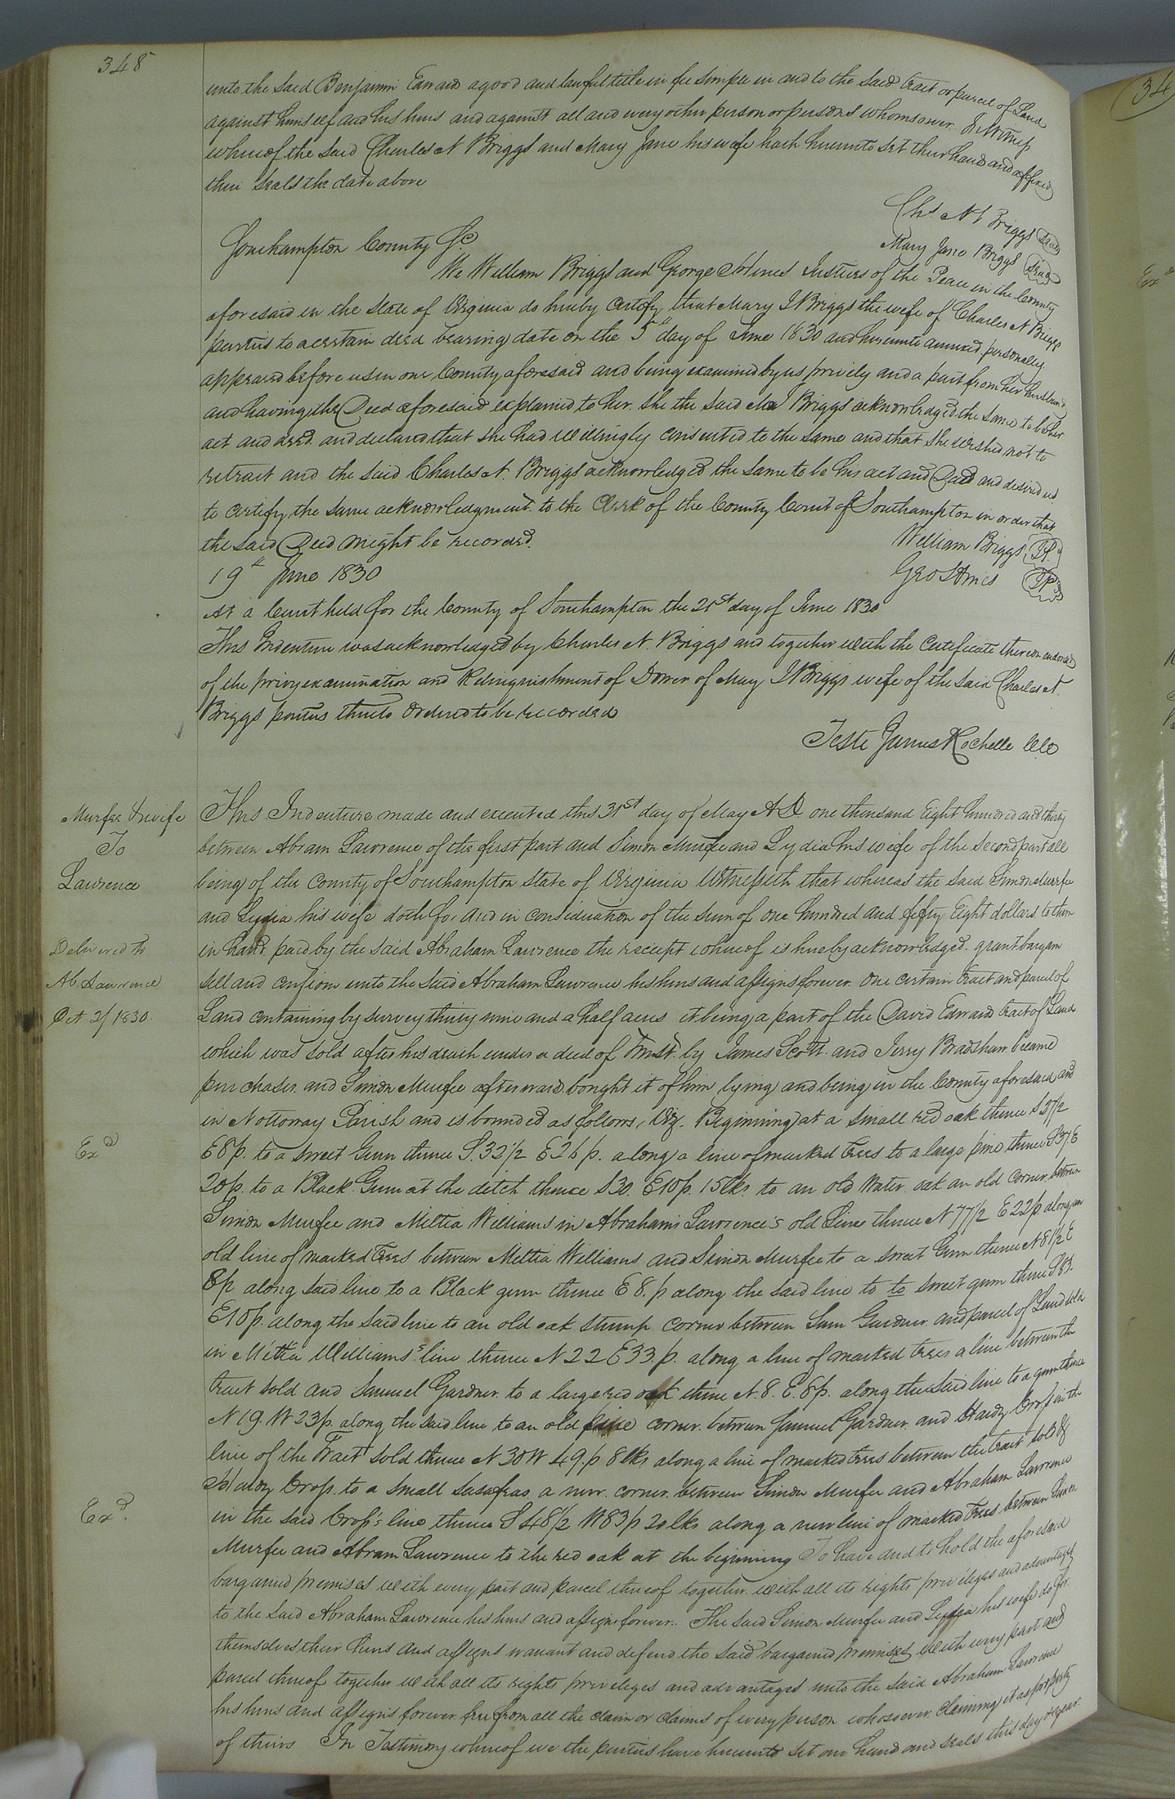 348
unto the said Benjamin Edwards a good and lawful title in fee simple in and to the said tract or parcel of Land
against himself and his heirs and against all and every other person or persons whomsoever In Witness
whereof the said Charles N Briggs and Mary Jane his wife hath hereunto set their hands and affixed
their seals the date above
Chs N Briggs Seal
Mary Jane Briggs Seal
Southampton County Sc.
We William Briggs and George Justices of the Peace in the County
aforesaid in the State of Virginia do hereby certify that Mary J Briggs the wife of Charles N Briggs
parties to a certain deed bearing date on the 5th day of June 1830 and hereunto annexed, personally
appeared before us in our County aforesaid and being examined by us privily and apart from her husband
and having the Deed aforesaid explained to her she the said Briggs acknowledged the same to be her
act and deed and declared that she had willingly consented to the same and that she wished not to
retract and the said Charles N. Briggs acknowledged the same to be his act and Deed and desired us
to certify the same acknowledgment to the Clerk of the County Court of Southampton in order that
the said Deed might be recorded.
William Briggs J.P.
19th June 1830
JP
At a Court held for the County of Southampton the 21st day of June 1830
This Indenture was acknowledged by Charles N. Briggs and together with the Certificate thereon endorsed
of the privy examination and Relinquishment of Dower of Mary J Briggs wife of the said Charles N.
Briggs parties thereto Ordered to be recorded
Teste James Rochelle
Murfee & wife
To
Lawrence
Delivered to
Ab Lawrence
Oct 2/1830
Exd
Exd.
This Indenture made and executed this 31st day of May A D one thousand Eight hundred and thirty
between Abram Lawrence of the first part and Simon Murfee and Lydia his wife of the Second part all
being of the County of Southampton State of Virginia Witnesseth that whereas the said Simon Murfee
and Lydia his wife doth for and in consideration of the sum of one hundred and fifty Eight dollars to them
in hand paid by the said Abraham Lawrence the receipt whereof is hereby acknowledged. grant bargain
sell and confirm unto the said Abraham Lawrence his heirs and assigns forever One certain tract and parcel of
Land containing by survey thirty nine and a half acres it being a part of the David Edwards tract of Land
which was sold after his death under a deed of Trust by James Scott and Jerry Bradsham became
purchaser and Simon Murfee afterward bought it of him lying and being in the County aforesaid and
in Nottoway Parish and is bounded as follows, Viz. Beginning at a small red oak thence S 37½
E 8p. to a sweet Gum thence S. 32½ E 26p. along a line of marked trees to a large pine thence S 37 E
20p. to a Black Gum at the ditch thence S 30. E 10p. 15lks to an old Water oak an old corner between
Simon Murfee and Mettia Williams in Abraham's Lawrence's old Line thence N 77½ E 22p along an
old line of marked trees between Mettia Williams and Simon Murfee to a sweet Gum thence N 81½ E
8p along said line to a Black gum thence E 8. p along the said line to to sweet gum thence S 83.
E 10p. along the said line to an old oak Stump corner between Sam Gardner and parcel of Land sold
in Mettia Williams's line thence N 22 E 33 p. along a line of marked trees a line between the
tract sold and Samuel Gardner to a large red oak thence N. 8. E. 8p. along the said line to a gum thence
N 19. W 23p. along the said line to an old pine corner between Samuel Gardner and Hardy Crop in the
line of the Tract sold thence N 30 W 49p 8 lks along a line of marked trees between the tract sold &
Hardy Crop. to a small Sasafras a new corner between Simon Murfee and Abraham Lawrence
in the said Crop's line thence S 48½ W 83p 20lks along a new line of marked trees between Simon
Murfee and Abram Lawrence to the red oak at the beginning To have and to hold the aforesaid
bargained premises with every part and parcel thereof together with all its rights privileges and advantages
to the said Abraham Lawrence his heirs and assigns forever. The said Simon Murfee and Lydia his wife do for
themselves their heirs and assigns warrant and defend the said bargained premises with every part and
parcel thereof together with all its rights privileges and advantages unto the said Abraham Lawrence
his heirs and assigns forever free from all the claim or claims of every person whosoever claiming it as property
of theirs In Testimony whereof we the parties have hereunto set our hand and seals this day & year